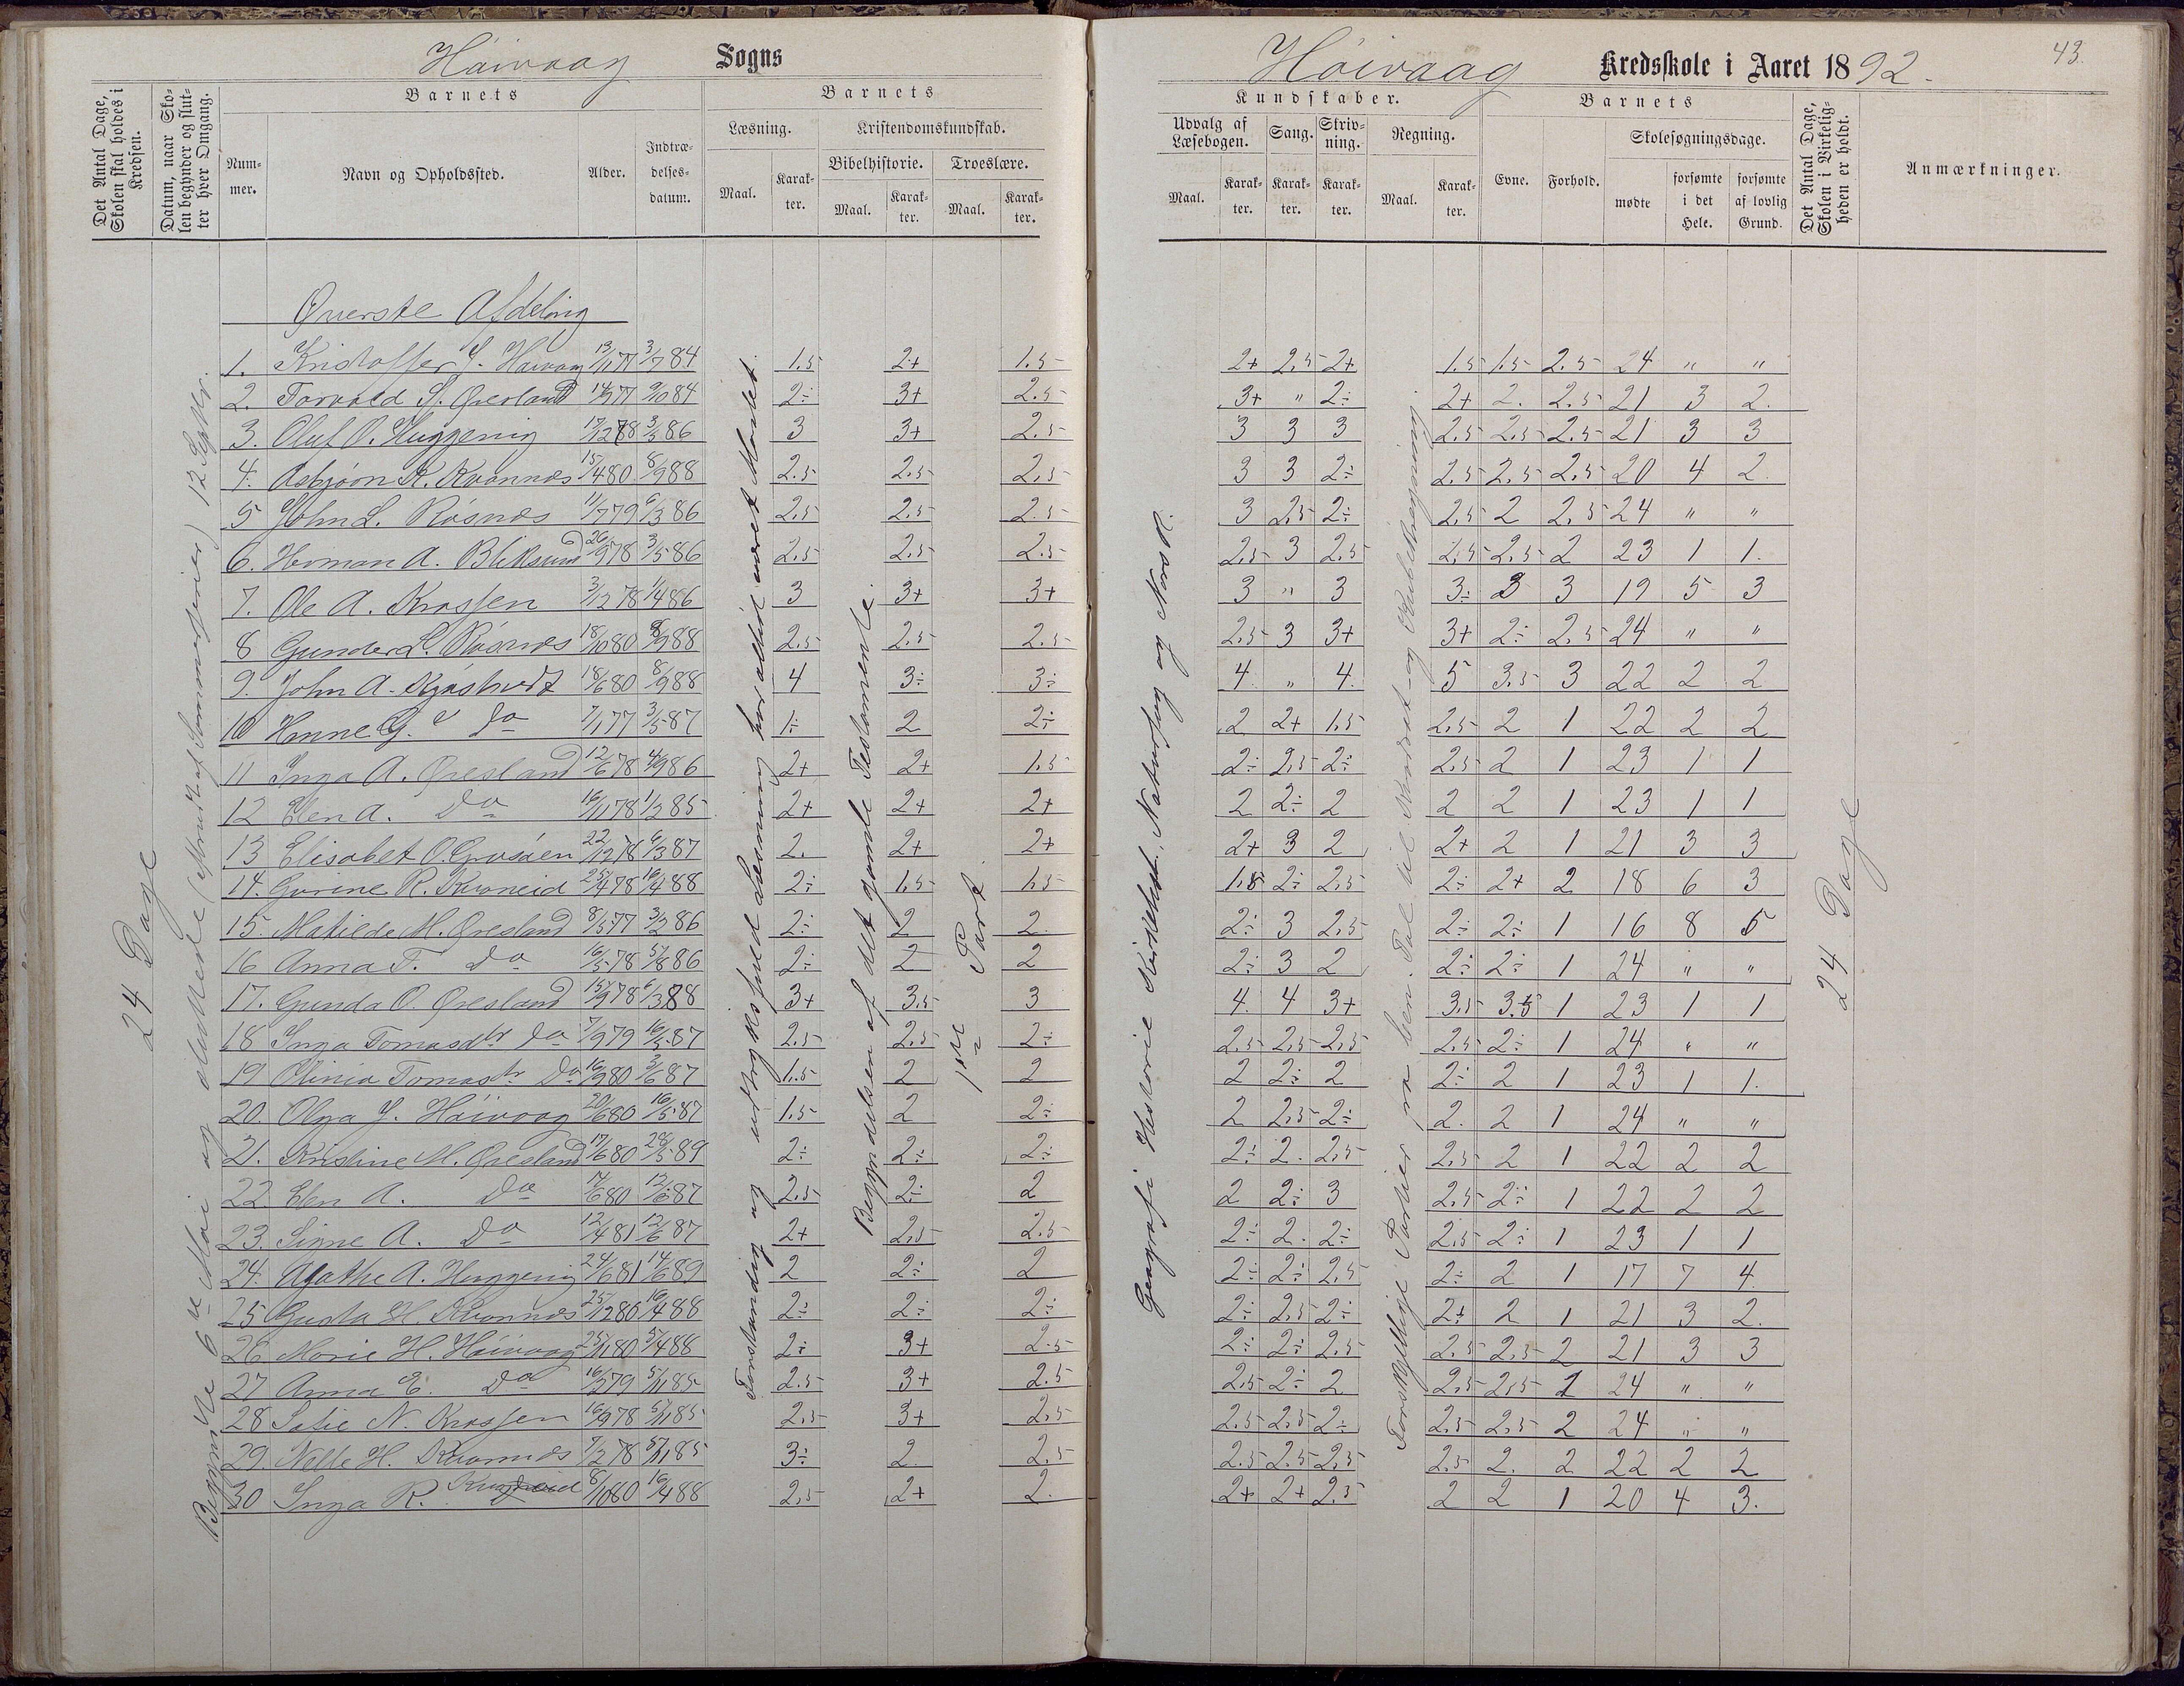 Høivaag Sogns
Høivaag Kredsskole i Aaret 1892. 43.
Det Antal Dage, Skolen skal holdes i Kredsen.
Datum, naar Skolen begynder og slutter hver Omgang.
Barnets
Nummer.
Navn og Opholdssted.
Alder.
Indtrædelsesdatum.
Barnets
Læsning.
Maal.
Karakter.
Kristendomskundskab.
Bibelhistorie.
Maal.
Karakter.
Troeslære.
Maal.
Karakter.
Kundskaber.
Udvalg af Læsebogen.
Maal.
Karakter.
Sang.
Karakter.
Skrivning.
Karakter.
Regning.
Maal.
Karakter.
Barnets
Evne.
Forhold.
Skolesøgningsdage.
mødte
forsømte i det Hele.
forsømte af lovlig Grund.
Det Antal Dage, Skolen i Virkeligheden er holdt.
Anmærkninger.
24 Dage
Øverste Afdeling
Forstandig og udtryksfuld Læsning har altid været Maalet.
Begyndelsen af det gamle Testamente.
1ste Part.
Geografi Historie Kirkehist., Naturfag og Norsk.
24 Dage
1. Kristoffer J. Høivaag 13/11 77 3/7 84 1.5 2+ 1.5 2+ 2,5 2+ 1.5 1.5 2.5 24 " "
2. Torvald S. Øresland 14/9 77 9/10 84 2÷ 3+ 2.5 3+ " 2÷ 2+ 2. 2.5 21 3 2.
3. Oluf O. Huggenig 17/12 78 3/5 86 3 3+ 2.5 3 3 3 2.5 2.5 2.5 21 3 3
4. Asbjørn K. Kvannes 15/4 80 8/9 88 2.5 2.5 2,5 3 3 2÷ 2.5 2,5 2,5 20 4 2.
5 John L. Røsnes 11/7 79 6/3 86 2,5 2.5 2.5 3 2,5 2÷ 2,5 2 2,5 24 " "
6. Herman A. Bliksund 26/9 78 3/5 86 2,5 2.5 2.5 2,5 3 2,5 2,5 2.5 2 23 1 1.
7. Ole A. Krossen 3/12 78 1/4 86 3 3+ 3+ 3 " 3 3÷ 3 3 19 5 3
8 Gunder L. Røsnes 18/10 80 8/9 88 2.5 2.5 2.5 2,5 3 3+ 3+ 2÷ 2,5 24 " "
9. John A. 18/6 80 8/9 88 4 3÷ 3÷ 4 " 4. 5 3,5 3 22 2 2
10 G. Do 7/1 77 3/5 87 1÷ 2 2÷ 2 2+ 1,5 2,5 2 1 22 2 2
11 Inga A. Øresland 12/6 78 4/9 86 2+ 2+ 1.5 2÷ 2,5 2÷ 2,5 2 1 23 1 1
12 Elen A. Do 16/11 78 1/3 85 2+ 2+ 2+ 2 2÷ 2 2 2 1 23 1 1
13 Elisabet O. 22/12 78 6/3 87 2. 2+ 2+ 2+ 3 2 2+ 2 1 21 3 3
14. Gurine R. 25/4 78 16/4 88 2÷ 1,5 1,5 1,5 2÷ 2,5 2÷ 2+ 2 18 6 3
15. Matilde M. Øresland 8/5 77 3/2 86 2÷ 2 2. 2÷ 3 2,5 2÷ 2÷ 1 16 8 5
16 Anna T. Do 16/5 78 5/8 86 2÷ 2 2 2÷ 3 2 2÷ 2÷ 1 24 " "
17. Gunda O. Øresland 15/9 78 6/3 88 3+ 3,5 3 4. 4 3+ 3,5 3.5 1 23 1 1
18 Inga Tomasdtr Do 7/9 79 16/5 87 2.5 2,5 2÷ 2.5 2,5 2,5 2,5 2÷ 1 24 " "
19 Olinia Tomasdtr Do 16/9 80 3/6 87 1.5 2 2 2 2÷ 2 2÷ 2 1 23 1 1.
20. Olga J. Høivaag 20/6 80 16/5 87 1.5 2 2÷ 2 2,5 2÷ 2. 2 1 24 " "
21. Kristine M. Øresland 17/6 80 28/5 89 2÷ 2÷ 2÷ 2÷ 2. 2,5 2,5 2 1 22 2 2
22. Elen A. Do 17/6 80 12/6 87 2,5 2÷ 2 2 2÷ 3 2,5 2÷ 1 22 2 2
23. Signe A. Do 12/4 81 12/6 87 2+ 2,5 2.5 2÷ 2. 2÷ 2,5 2÷ 1 23 1 1
24. Agathe A. Huggenig 24/6 81 14/6 89 2 2÷ 2 2÷ 2÷ 2,5 2÷ 2 1 17 7 4
25 Gusta H. Kvannes 25/12 80 16/4 88 2÷ 2÷ 2÷ 2÷ 2,5 2÷ 2+ 2 1 21 3 2.
26 Marie H. Høivaag 25/11 80 5/4 88 2÷ 3+ 2.5 2÷ 2÷ 2.5 2.5 2,5 2 21 3 3
27 Anna E. Do 16/2 79 5/11 85 2.5 3+ 2.5 2,5 2÷ 2 2,5 2,5 1 24 " "
28 Sofie N. Krossen 16/9 78 5/11 85 2,5 3+ 2,5 2.5 2,5 2÷ 2,5 2,5 2 24 " "
29. Nelle H. Kvannes 7/2 78 5/11 85 3÷ 2. 2,5 2.5 2.5 2,5 2,5 2. 2 22 2 2
30 Inga R. 8/10 80 16/4 88 2,5 2+ 2. 2+ 2+ 2.5 2 2 1 20 4 3.